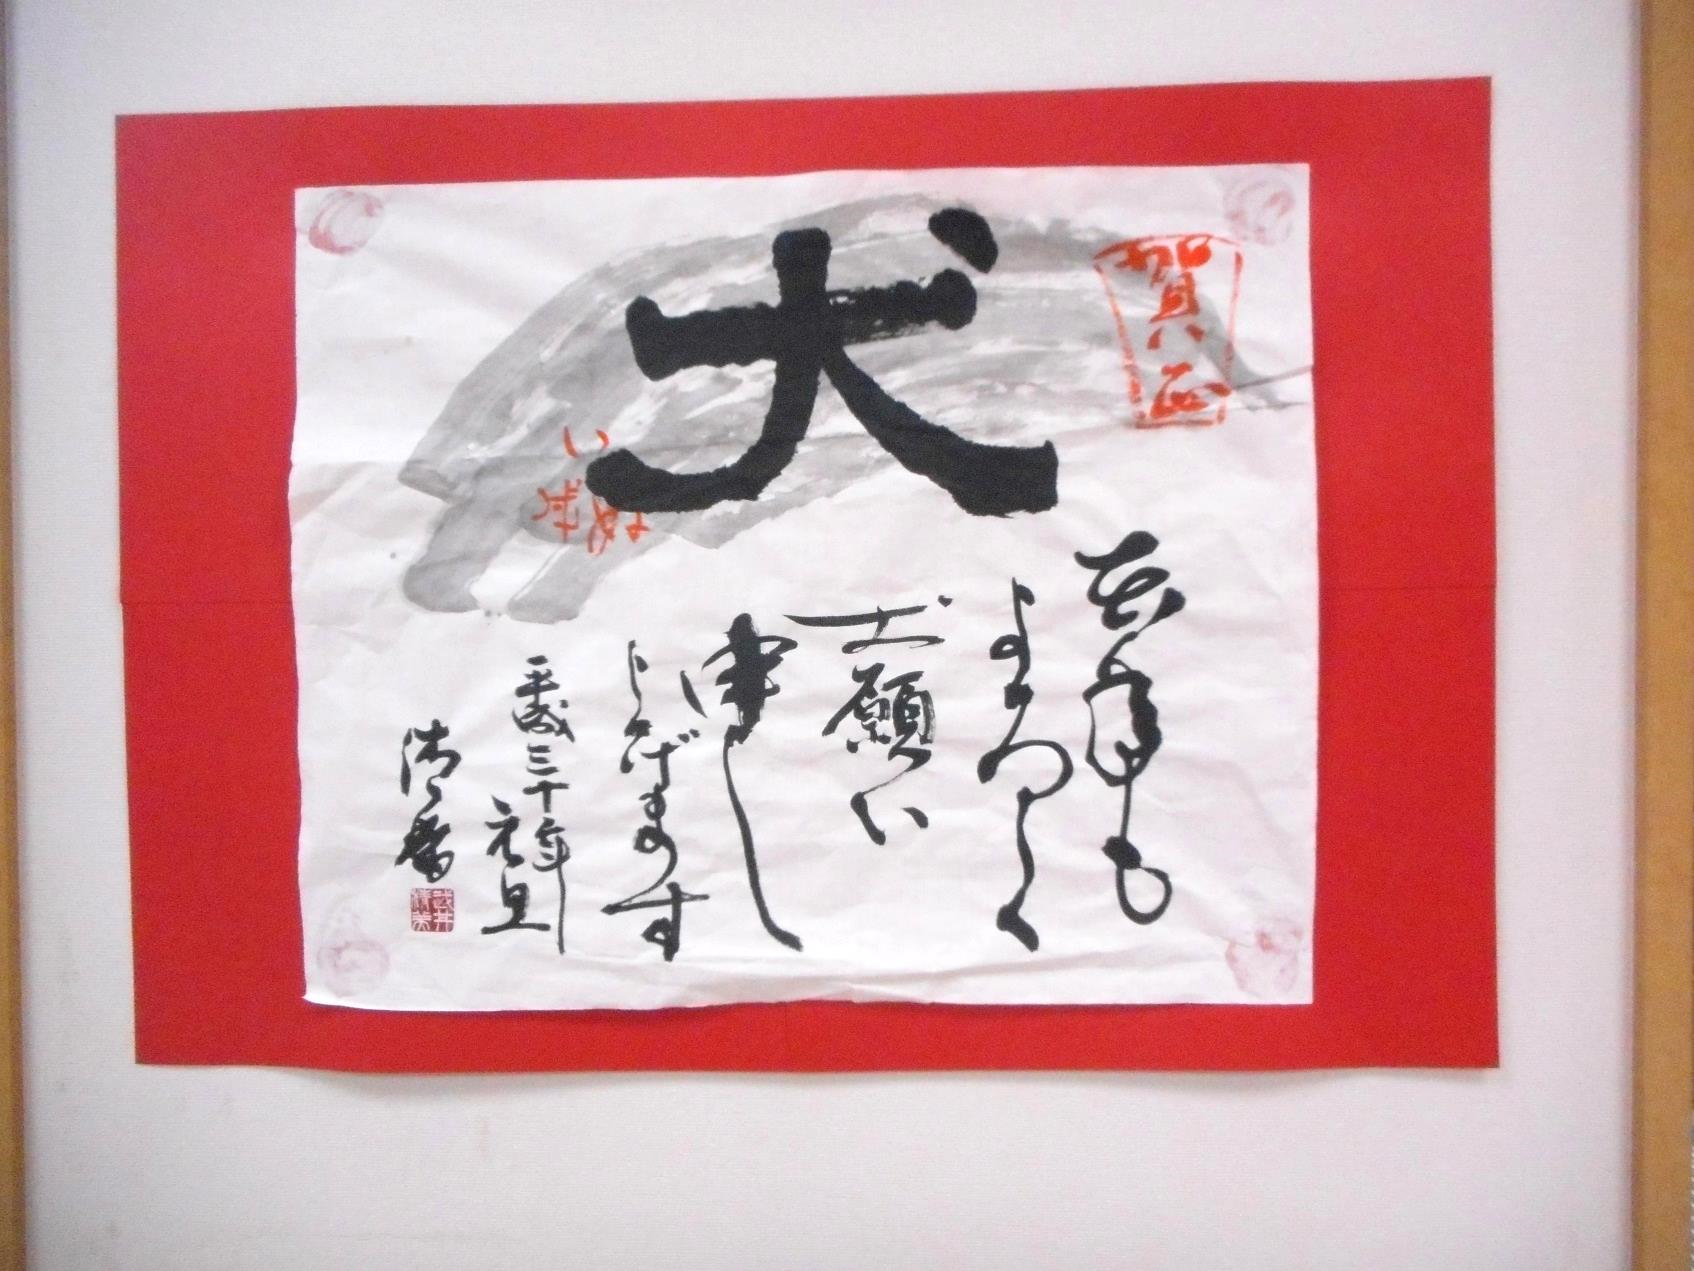 犬
賀正
いぬ
歳
本年も
よろしく
お願い
申し
上げます
平成三十年
元旦
清香
武井
精美